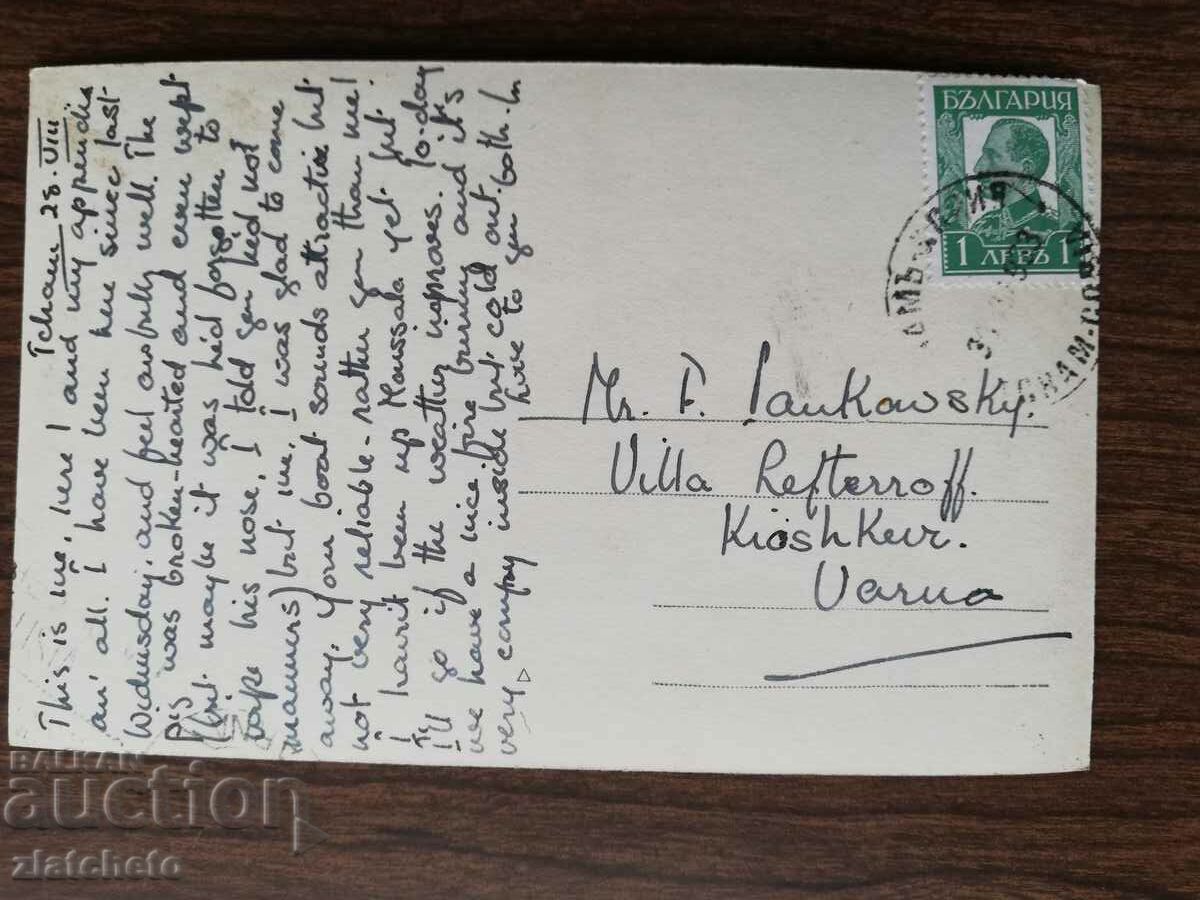 Tcham 28.VIII
This is me, here I and my appendix
an' all. I have been here since last
Widnesday, and feel awfully well. The
Pig was broken-hearted and even wept
(but maybe it was hid forgotten to
wipe his nose. I told you hed not
manners) but me, I was glad to come
away. Your boat sounds attractive but
not very reliable - rather you than me!
I havn't been up Moussala yet but
I'll go if the weather improves. To-day
we have a nice fire burning and it's
very compy inside but cold out both. Ln
love to you
БЪЛГАРИЯ
1 ЛЕВЪ 1
Mr. F. Jankowsky.
Villa Lefterroff.
Kioshkeur.
Varna
BALKAN
auction
zlatcheto